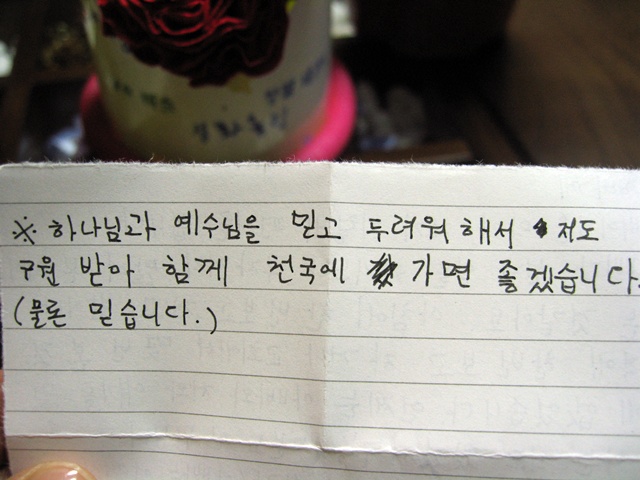 ※ 하나님과 예수님을 믿고 두려워 해서 저도
구원 받아 함께 천국에 가면 좋겠습니다.
(물론 믿습니다.)